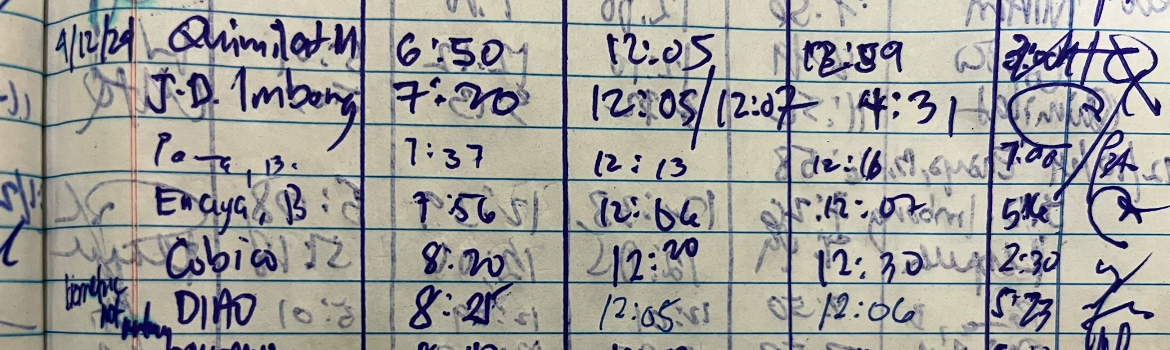 9/12/24 Quimilat.M 6:50 12:05 12:59
J.D. Imbong 7:20 12:05/12:07 4:31
7:37 12:13 12:16 7:00
Enaya, B 7:56 12:06 12:07 5:16
Cobico 8:20 12:20 12:30 2:30
biometric not DIAO 8:25 12:05 12:06 5:23